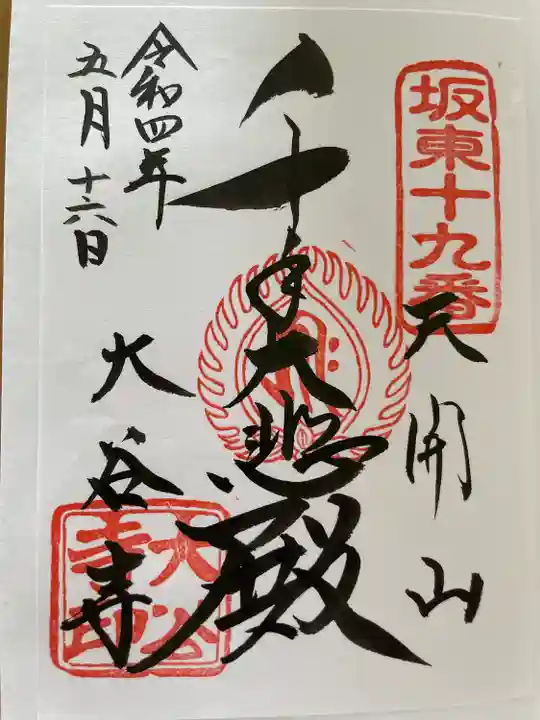 坂東十九番
天開山
千手大悲殿
令和四年
五月十六日
大谷寺
大谷寺印